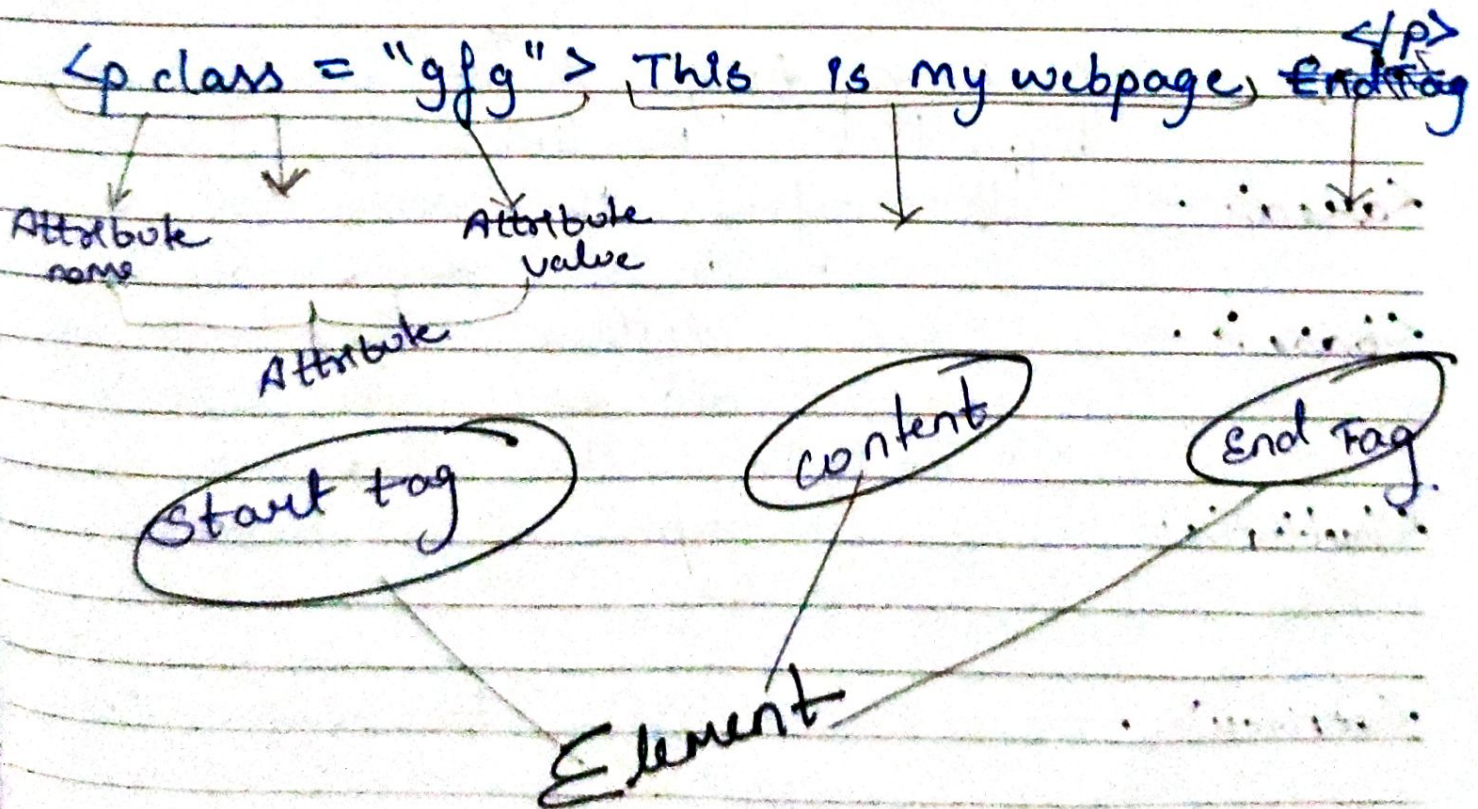 </p>
<p class = "gfg"> This is my webpage, End Tag
Attribute name
Attribute value
Attribute
Start tag
content
End Tag.
Element